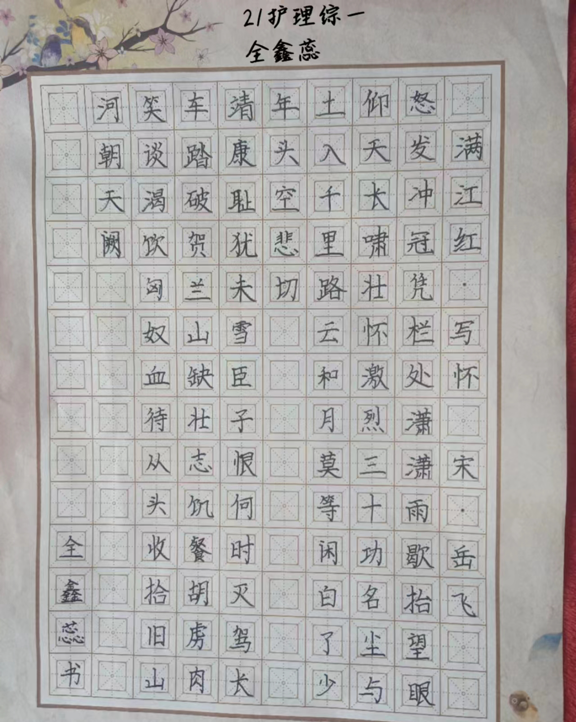 21护理综一
全鑫蕊
满江红·写怀 宋·岳飞
怒发冲冠凭栏处潇潇雨歇抬望眼
仰天长啸壮怀激烈三十功名尘与
土入千里路云和月莫等闲白了少
年头空悲切
靖康耻犹未雪臣子恨何时灭驾长
车踏破贺兰山缺壮志饥餐胡虏肉
笑谈渴饮匈奴血待从头收拾旧山
河朝天阙
全鑫蕊书